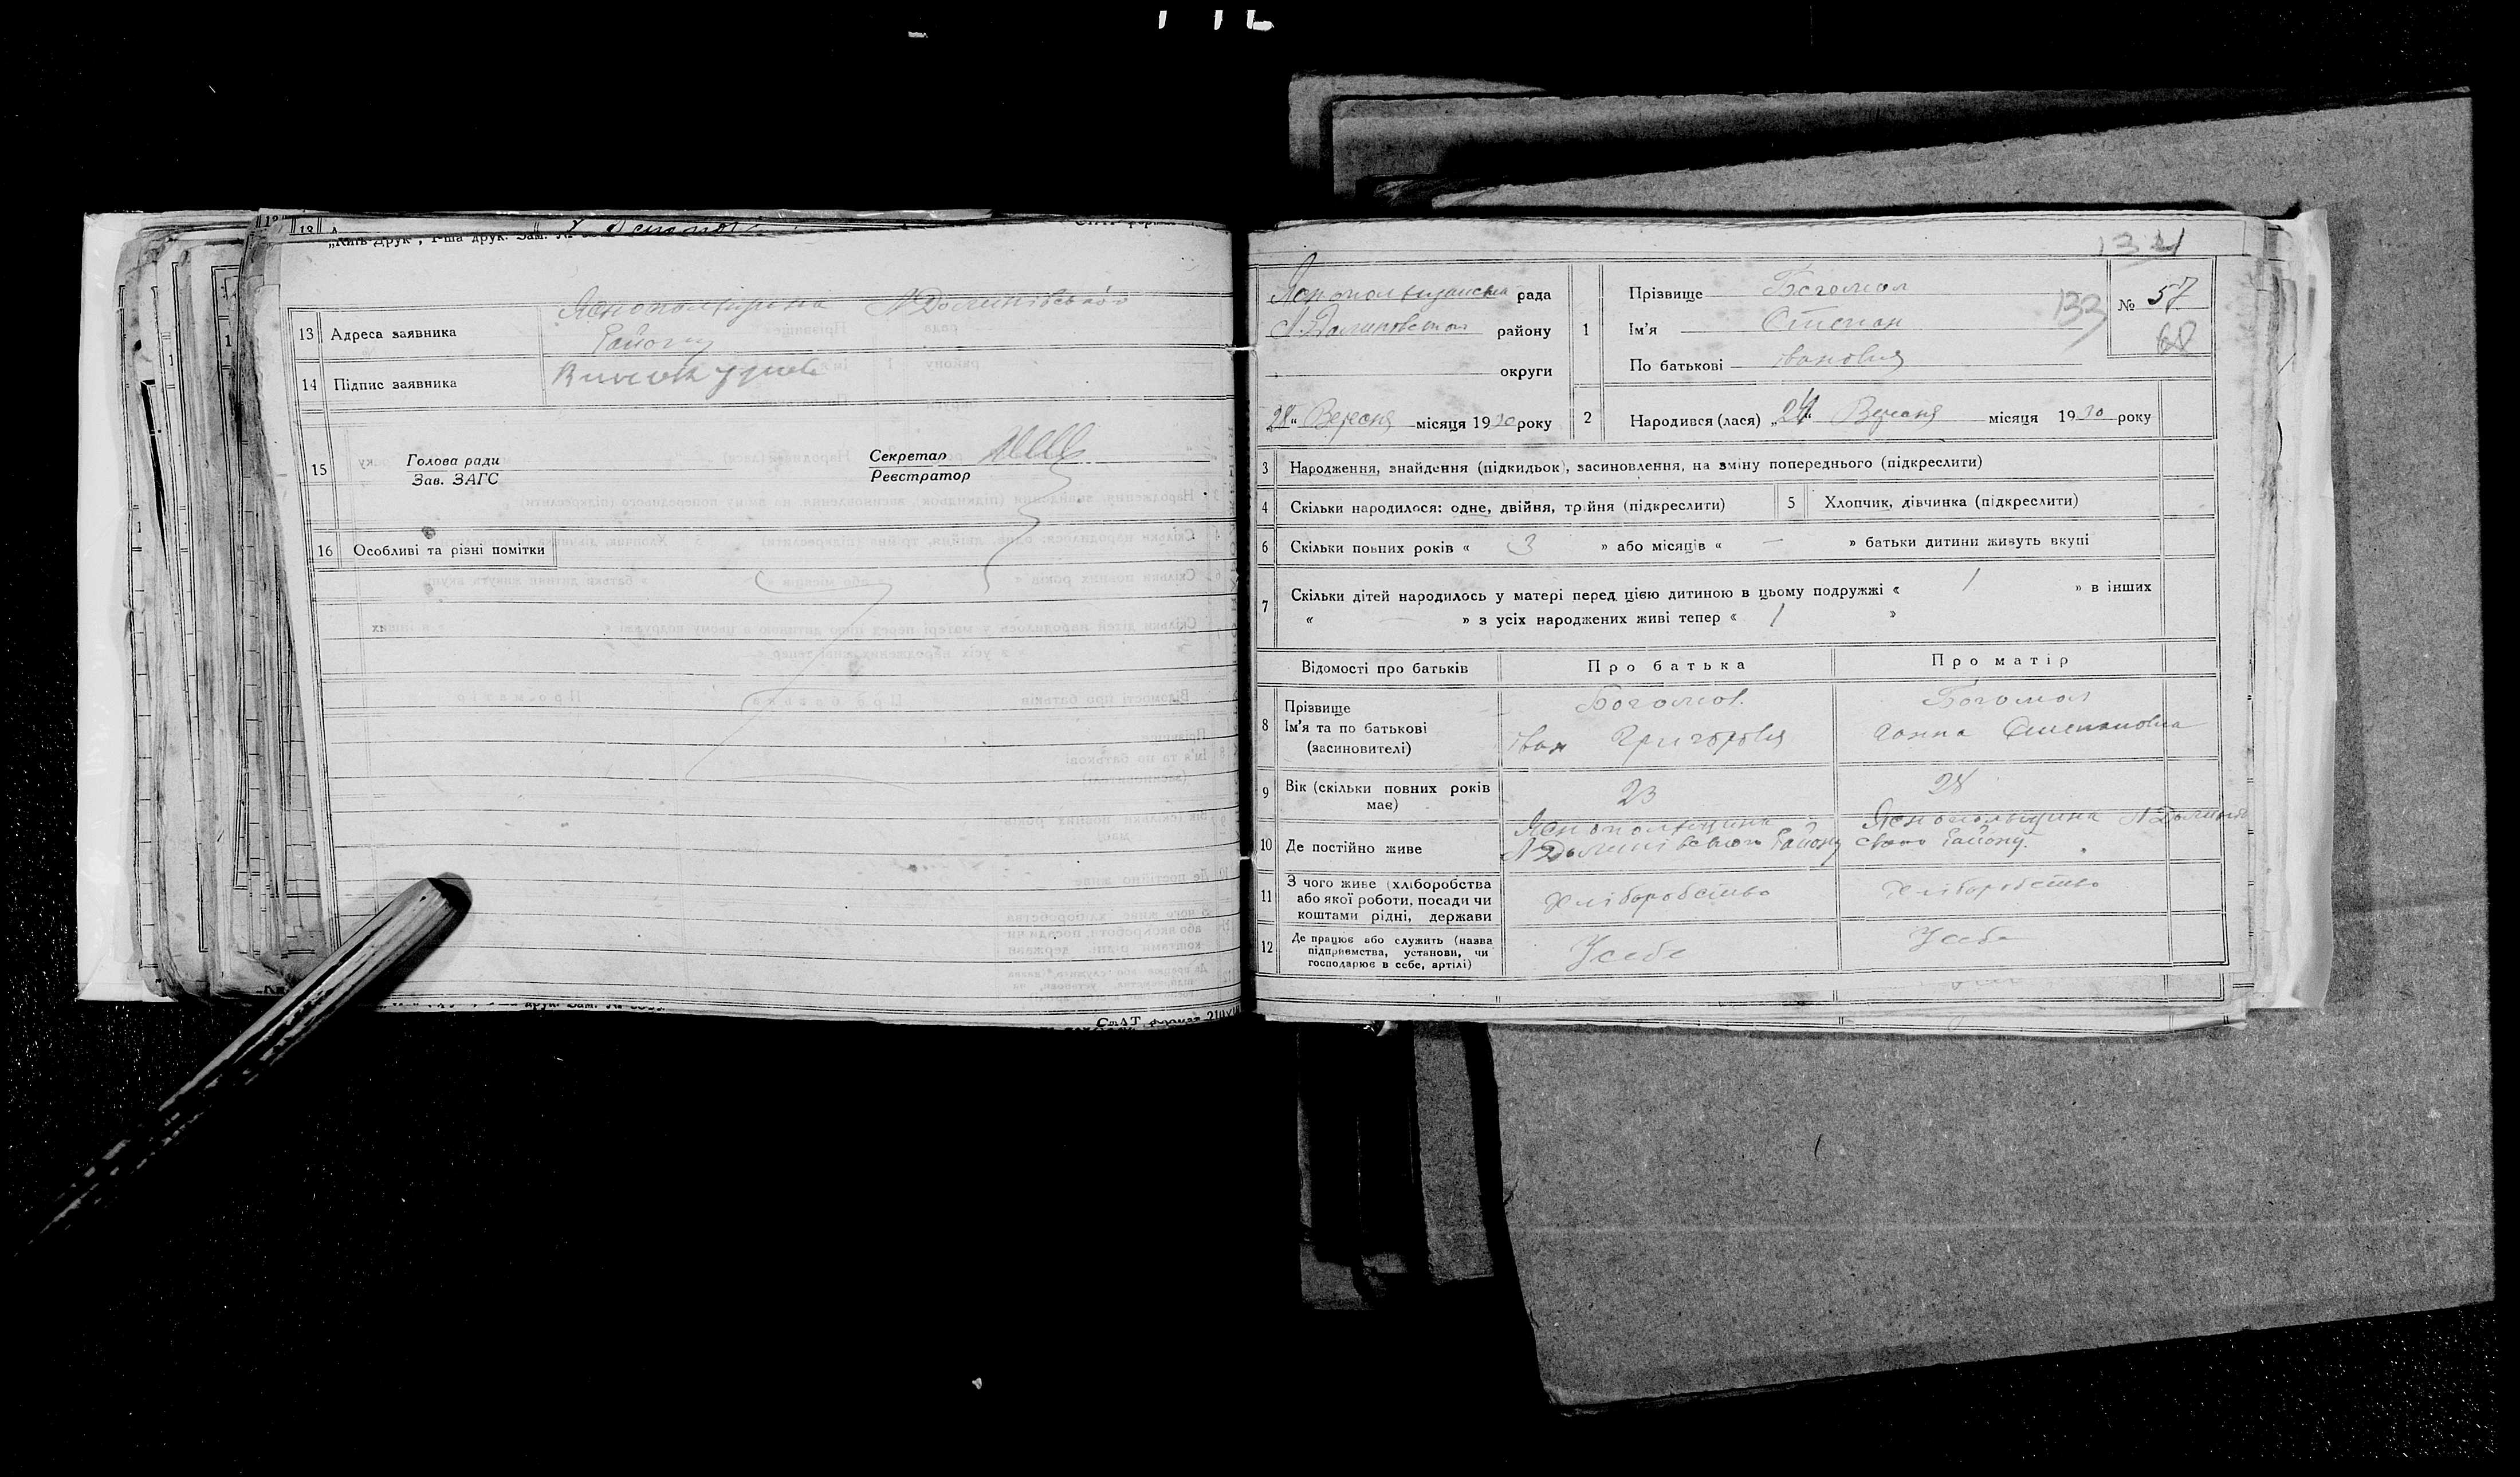 „Київ-Друк", 1-ша друк. Зам. №
13 Адреса заявника Яснопольщина Н Долинівського
Району
14 Підпис заявника
15 Голова ради
Зав. ЗАГС
Секретар
Реєстратор
16 Особливі та різні помітки
СтАТ формат 210
134
Яснопольщанська рада
Н. Долиновського району
округи
28 „ Вересня місяця 1930 року
1 Прізвище Богомол
Ім'я Степан
По батькові Іванович
133
№ 57
68
2 Народився (лася) „24" Вересня місяця 1930 року
3 Народження, знайдення (підкидьок), засиновлення, на зміну попереднього (підкреслити)
4 Скільки народилося: одне, двійня, трійня (підкреслити)
5 Хлопчик, дівчинка (підкреслити)
6 Скільки повних років « 3 » або місяців « — » батьки дитини живуть вкупі
7 Скільки дітей народилось у матері перед цією дитиною в цьому подружжі « 1 » в інших
« — » з усіх народжених живі тепер « 1 »
Відомості про батьків Про батька Про матір
8 Прізвище Богомол Богомол
Ім'я та по батькові Іван Григорович Ганна Степановна
(засиновителі)
9 Вік (скільки повних років має) 23 28
10 Де постійно живе Яснопольщина Н Долинівського Району Яснопольщина Н Долинівського Району.
11 З чого живе (хліборобства
або якої роботи, посади чи
коштами рідні, держави
Хліборобство Хліборобство
12 Де працює або служить (назва
підприємства, установи, чи
господарює в себе, артілі)
У себе У себе